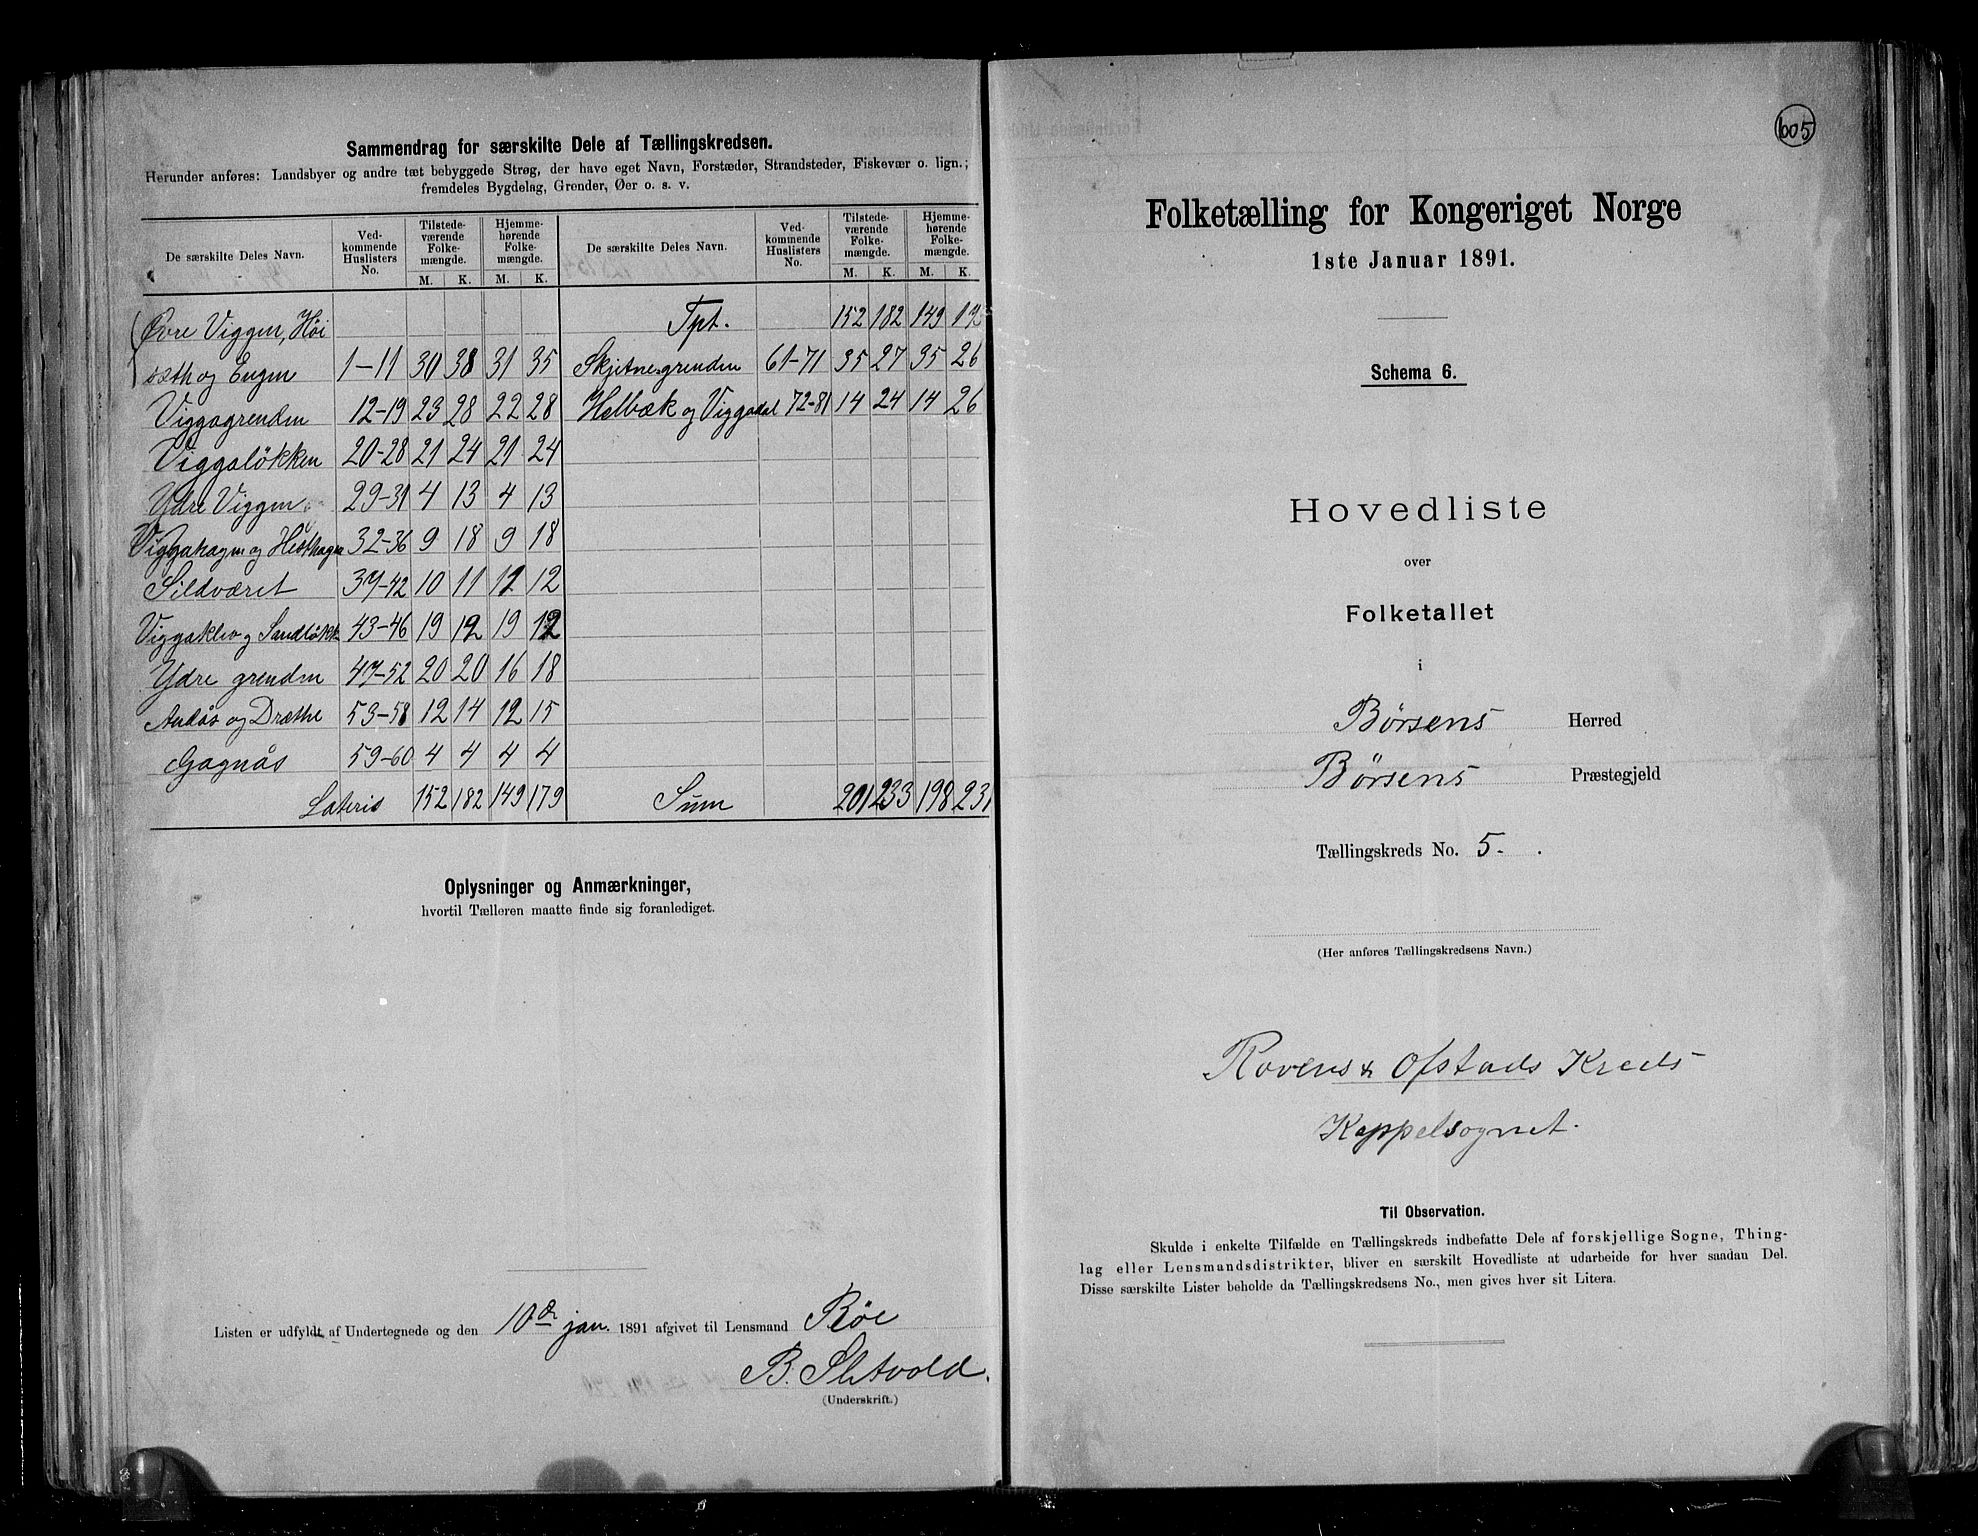 Sammendrag for særskilte Dele af Tællingskredsen.
Herunder anføres: Landsbyer og andre tæt bebyggede Strøg, der have eget Navn, Forstæder, Strandsteder, Fiskevær o. lign.;
fremdeles Bygdelag, Grender, Øer o. s. v.
De særskilte Deles Navn. Ved-kommende Huslisters No. Tilstede-værende Folke-mængde. M. K. Hjemme-hørende Folke-mængde. M. K.
Øvre Viggen, Höi
sæth og Engen 1-11 30 38 31 35
Viggagrenden 12-19 23 28 22 28
Viggaløkken 20-28 21 24 21 24
Ydre Viggen 29-31 4 13 4 13
Viggahagen og Hesthagen 32-36 9 18 9 18
Sildværet 37-42 10 11 12
Viggaklev og Sandløkk 43-46 19 12 19 12
Ydre grenden 47-52 20 20 16 18
og Dræthe 53-58 12 14 12 15
Gagnås 59-60 4 4 4 4
Lateris 152 182 149 179
De særskilte Deles Navn. Ved-kommende Huslisters No. Tilstede-værende Folke-mængde. M. K. Hjemme-hørende Folke-mængde. M. K.
Tpt. 152 182 149
Skjetnegrenden 61-71 35 27 35 26
Helbæk og Viggadal 72-81 14 24 14 26
Sum 201 233 198 231
Oplysninger og Anmærkninger,
hvortil Tælleren maatte finde sig foranlediget.
Listen er udfyldt af Undertegnede og den 10de jan. 1891 afgivet til Lensmand Röe
B. Sletvold.
(Underskrift.)
605
Folketælling for Kongeriget Norge
1ste Januar 1891.
Schema 6.
Hovedliste
over
Folketallet
i
Børsens Herred
Børsens Præstegjeld
Tællingskreds No. 5.
(Her anføres Tællingskredsens Navn.)
Rovens & Ofstads Kreds
Kappelsognet.
Til Observation.
Skulde i enkelte Tilfælde en Tællingskreds indbefatte Dele af forskjellige Sogne, Thing-
lag eller Lensmandsdistrikter, bliver en særskilt Hovedliste at udarbeide for hver saadan Del.
Disse særskilte Lister beholde da Tællingskredsens No., men gives hver sit Litera.